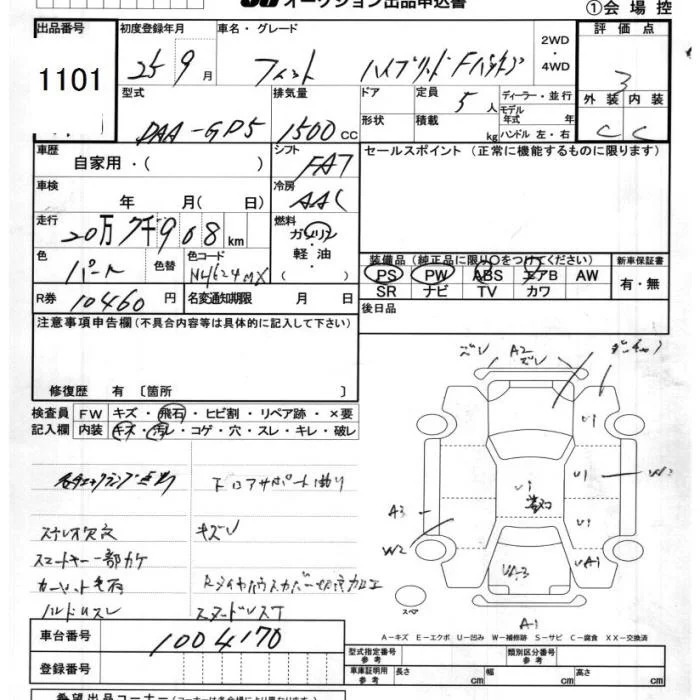 オークション出品申込書
①会場控
出品番号 初度登録年月 車名・グレード 評価点
1101 25 9月 フィット ハイブリッド Fパッケージ 2WD・4WD 3
型式 排気量 ドア 定員 ディーラー・並行 外装 内装
DAA-GP5 1500cc 5人 モデル年式 年 C C
形状 積載 kg ハンドル 左・右
車歴 シフト セールスポイント (正常に機能するものに限ります)
自家用・( ) FAT
車検 冷房
年 月( 日) AAC
走行 燃料
20万7千908km ガソリン・
軽油・
( )
色 色替 色コード 装備品 (純正品に限り○をつけてください) 新車保証書
パール NH624MX PS PW ABS エアB AW 有・無
SR ナビ TV カワ
R券 10460円 名変通知期限 月 日 後日品
注意事項申告欄(不具合内容等は具体的に記入して下さい)
修復歴 有 〔箇所 〕
検査員 FW キズ・飛石・ヒビ割・リペア跡・×要
記入欄 内装 キズ・汚レ・コゲ・穴・スレ・キレ・破レ
ズレ A2 ズレ
U1
U1 U1 W2
A3 U1
W2 UA1
UA-3
スペア
A-1
各チェックランプ点灯 下回アサポート曲り
ステレオ欠品 キズV
スマートキー一部カケ
ハンドルスレ
車台番号 1004170
A－キズ E－エクボ U－凹み W－補修跡 S－サビ C－腐食 XX－交換済
登録番号 型式指定番号 参考 類別区分番号 参考
車庫証明用 参考 長さ cm 幅 cm 高さ cm
希望出品コーナー